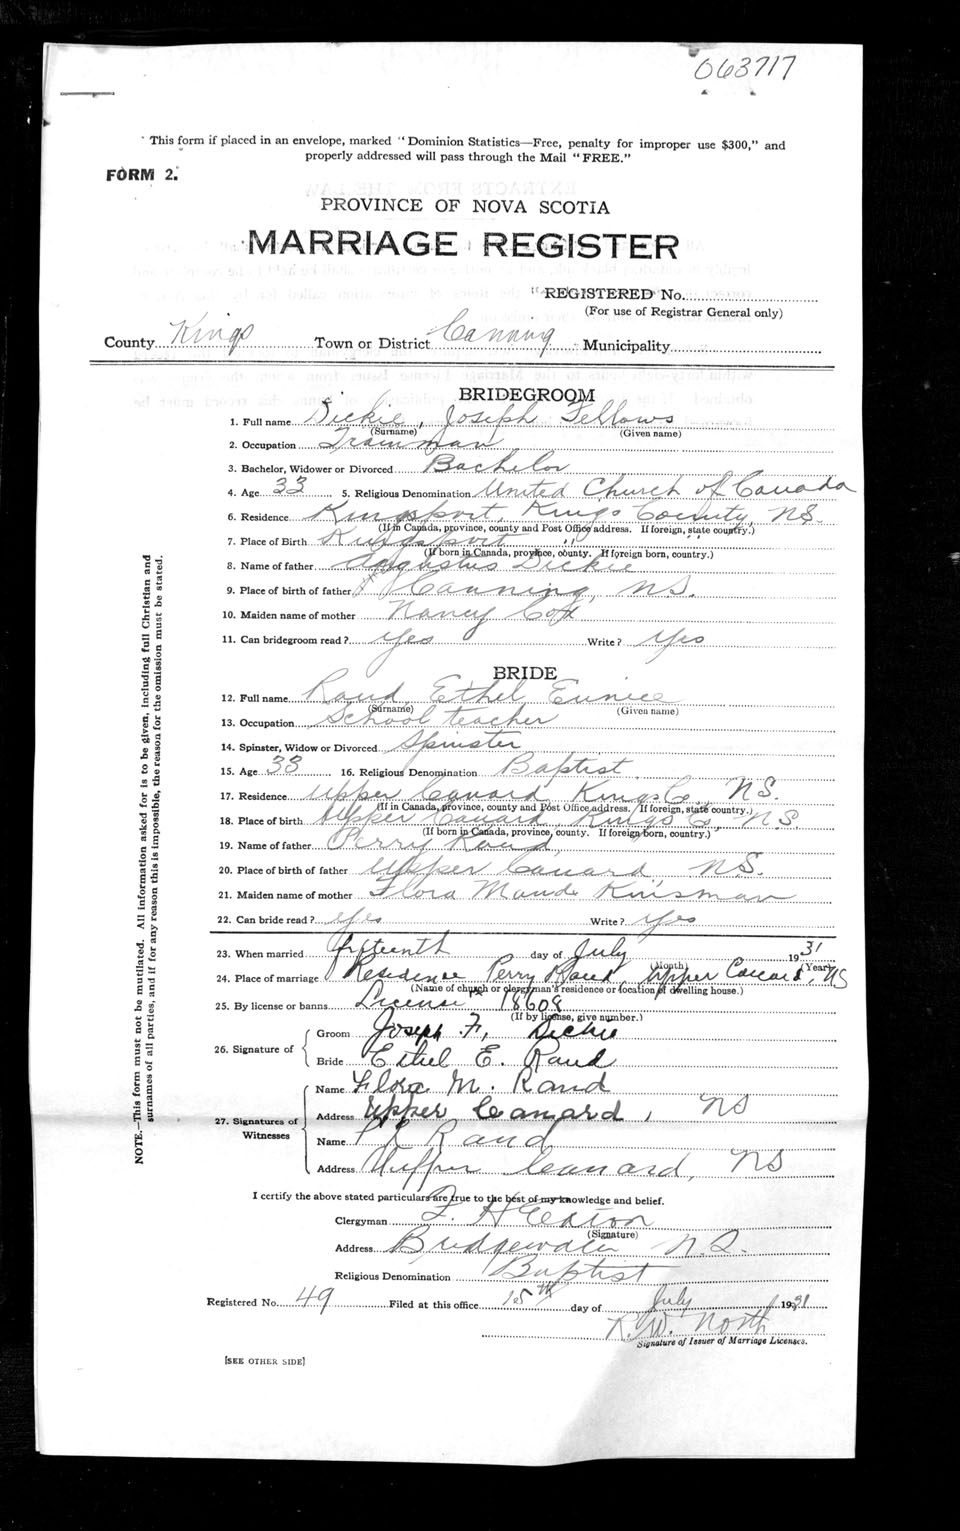 063717
This form if placed in an envelope, marked "Dominion Statistics—Free, penalty for improper use $300," and
properly addressed will pass through the Mail "FREE."
FORM 2.
PROVINCE OF NOVA SCOTIA
MARRIAGE REGISTER
REGISTERED No.
(For use of Registrar General only)
County Kings Town or District Canning Municipality
BRIDEGROOM
1. Full name Dickie, Joseph Fellows
(Surname) (Given name)
2. Occupation Trainman
3. Bachelor, Widower or Divorced Bachelor
4. Age 33 5. Religious Denomination United Church of Canada
6. Residence Kingsport Kings County, N.S.
(If in Canada, province, county and Post Office address. If foreign, state country.)
7. Place of Birth Kingsport " "
(If born in Canada, province, county. If foreign born, country.)
8. Name of father Augustus Dickie
9. Place of birth of father Canning, N.S.
10. Maiden name of mother Nancy Cox
11. Can bridegroom read? Yes Write? Yes
BRIDE
12. Full name Rand, Ethel Eunice
(Surname) (Given name)
13. Occupation School teacher
14. Spinster, Widow or Divorced Spinster
15. Age 33 16. Religious Denomination Baptist
17. Residence Upper Canard, Kings Co., N.S.
(If in Canada, province, county and Post Office Address. If foreign, state country.)
18. Place of birth Upper Canard, Kings Co, N.S
(If born in Canada, province, county. If foreign born, country.)
19. Name of father Perry Rand,
20. Place of birth of father Upper Canard, N.S.
21. Maiden name of mother Flora Maude Kinsman
22. Can bride read? Yes Write? Yes
23. When married fifteenth day of July 1931
(Month) (Year)
24. Place of marriage Residence Perry Rand, Upper Canard, NS
(Name of church or clergyman's residence or location of dwelling house.)
25. By license or banns License 18608
(If by license, give number.)
26. Signature of
Groom Joseph F. Dickie
Bride Ethel E. Rand
27. Signatures of Witnesses
Name Flora M. Rand
Address Upper Canard, NS
Name Rand
Address Upper Canard, NS
I certify the above stated particulars are true to the best of my knowledge and belief.
Clergyman F. H Eaton
(Signature)
Address Bridgewater N.S.
Religious Denomination Baptist
Registered No. 49 Filed at this office 15th day of July 1931
R. W. North
Signature of Issuer of Marriage Licenses.
[SEE OTHER SIDE]
NOTE.—This form must not be mutilated. All information asked for is to be given, including full Christian and
surnames of all parties, and if for any reason this is impossible, the reason for the omission must be stated.